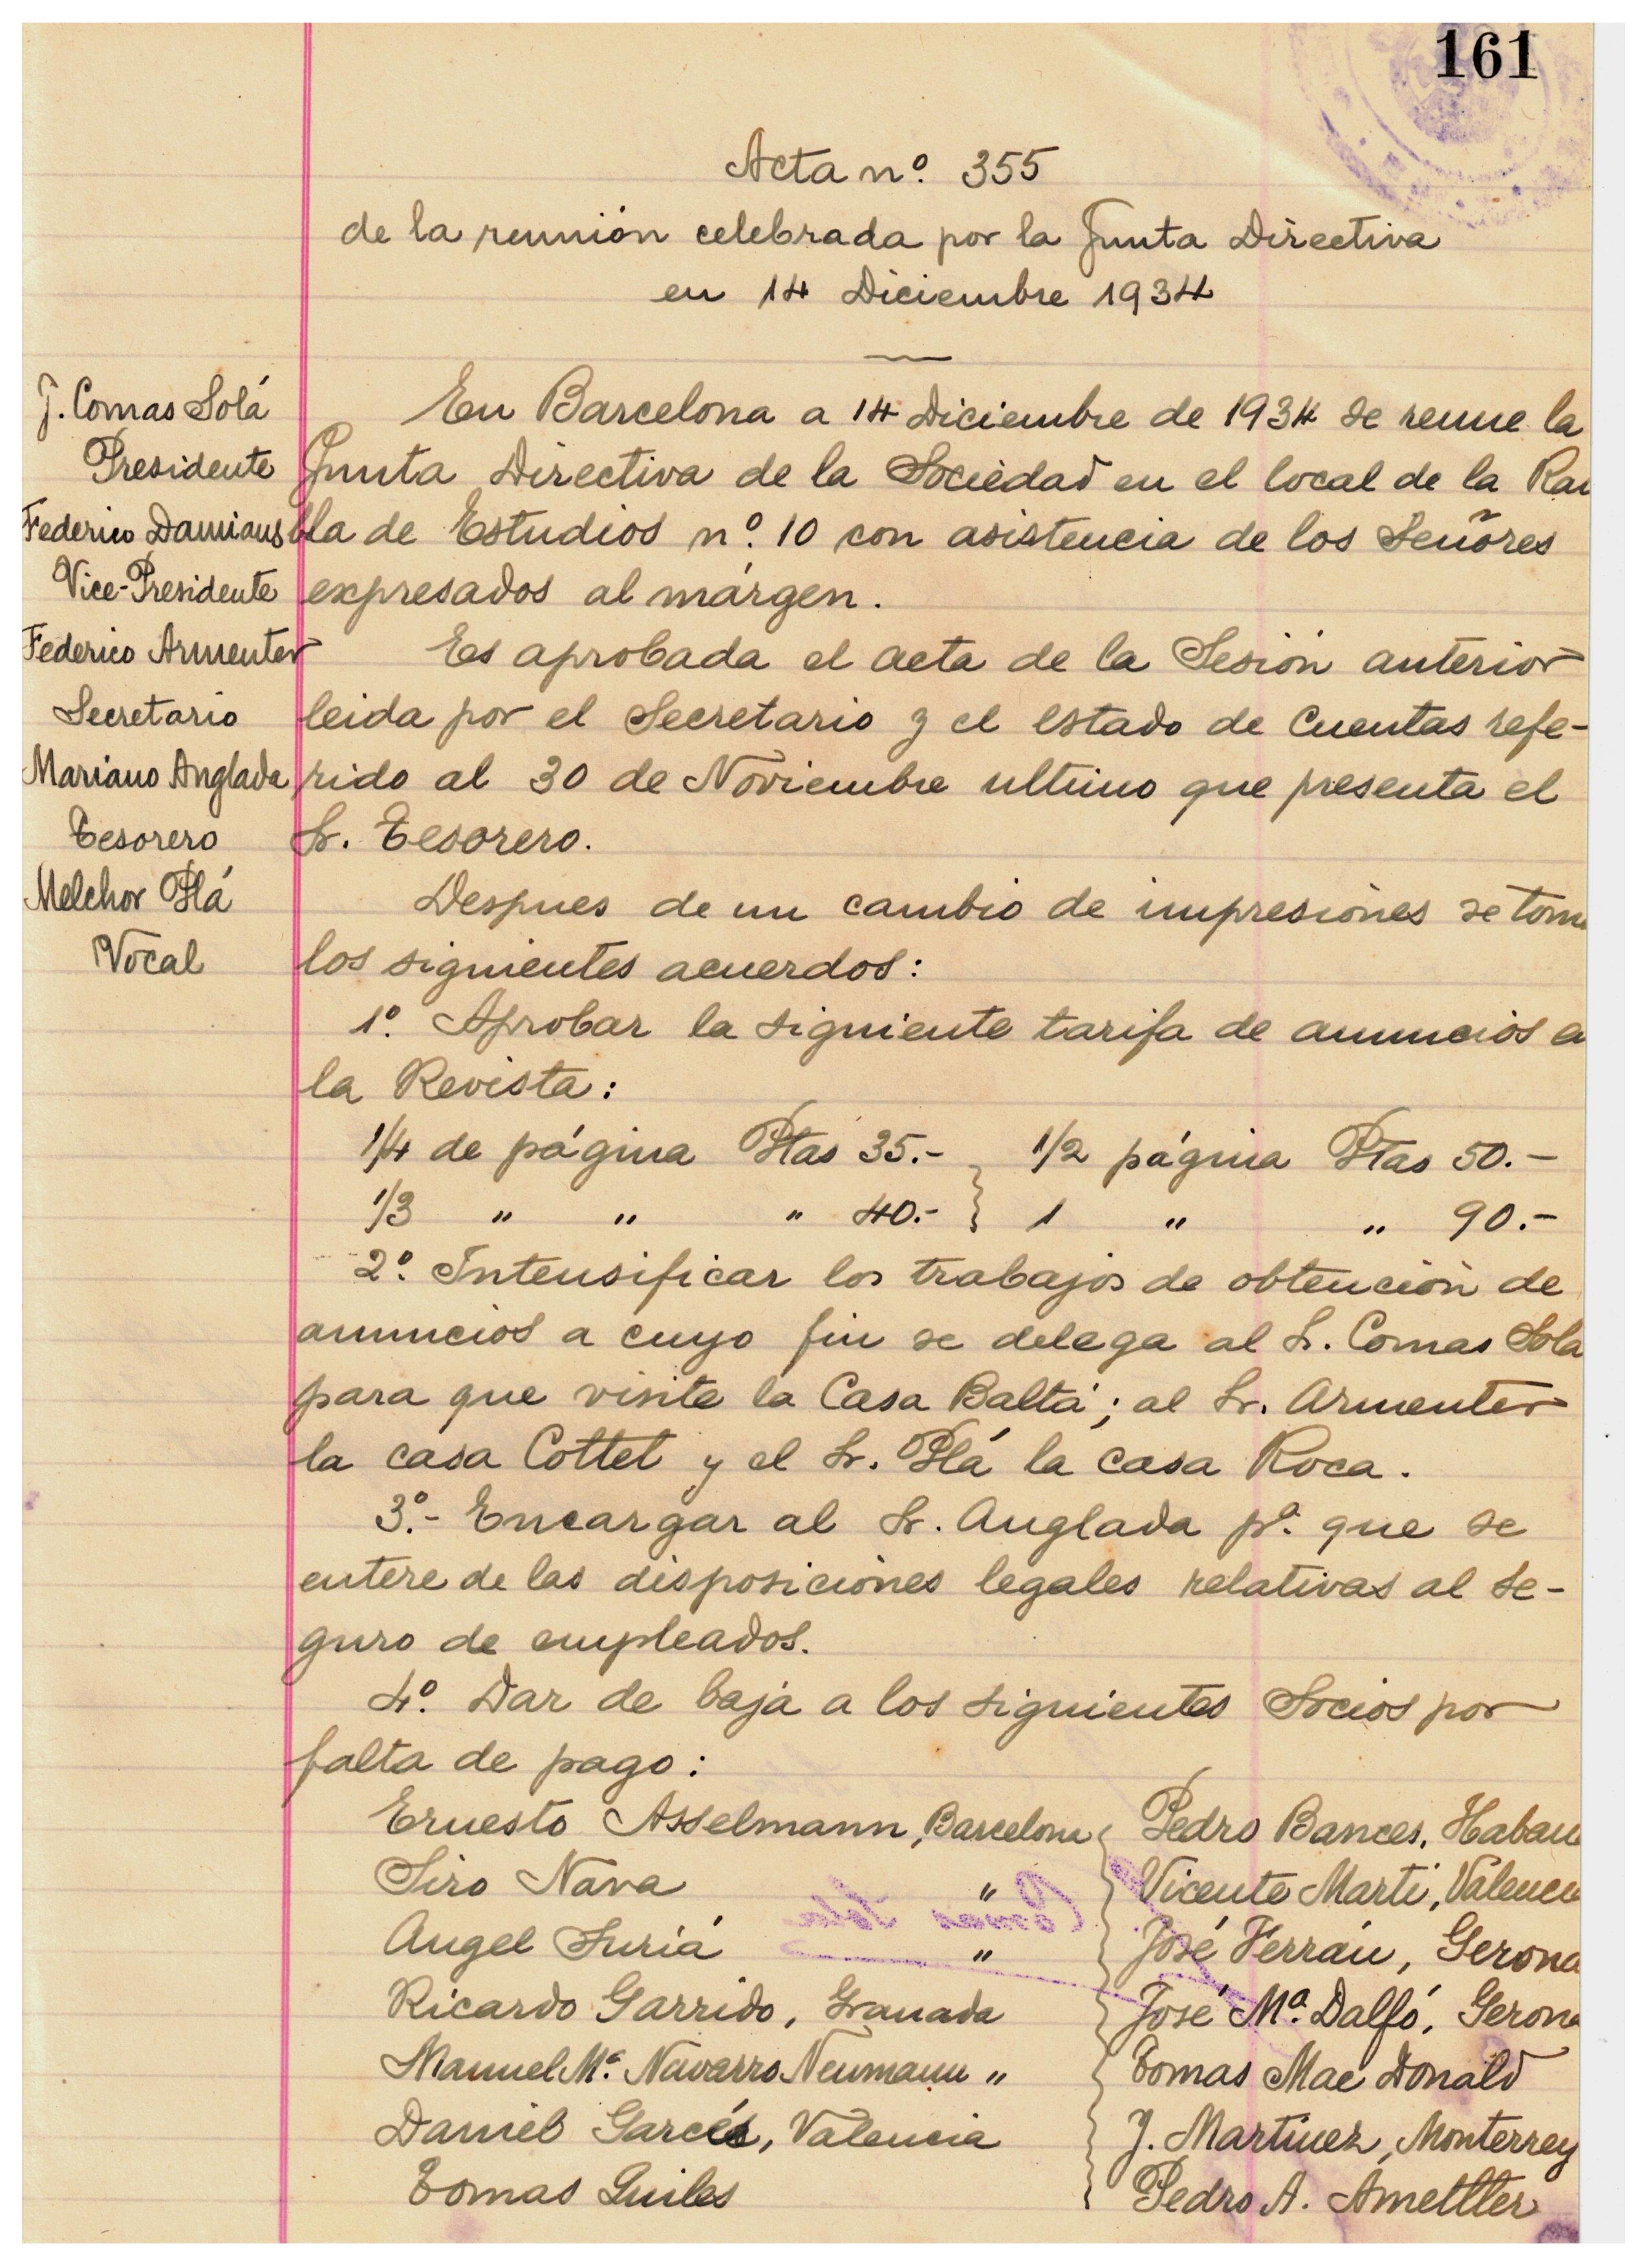 161
Acta nº. 355
de la reunión celebrada por la Junta Directiva
en 14 Diciembre 1934
J. Comas Solá
Presidente
Federico Damians
Vice-Presidente
Federico Armenter
Secretario
Mariano Anglada
Tesorero
Melchor Plá
Vocal
En Barcelona a 14 Diciembre de 1934 se reune la
Junta Directiva de la Sociedad en el local de la Ram
bla de Estudios nº. 10 con asistencia de los Señores
expresados al márgen.
Es aprobada el acta de la Sesión anterior
leida por el Secretario y el estado de Cuentas refe-
rido al 30 de Noviembre ultimo que presenta el
Sr. Tesorero.
Despues de un cambio de impresiones se toma
los siguientes acuerdos:
1º. Aprobar la siguiente tarifa de anuncios e
la Revista:
1/4 de página Ptas 35.- } 1/2 página Ptas 50.-
1/3 " " " 40.- } 1 " " 90.-
2º. Intensificar los trabajos de obtención de
anuncios a cuyo fin se delega al Sr. Comas Sola
para que visite la Casa Baltá; al Sr. Armenter
la casa Cottet y el Sr. Plá la casa Roca.
3º.- Encargar al Sr. Anglada pª. que se
entere de las disposiciones legales relativas al se-
guro de empleados.
4º. Dar de baja a los siguientes Socios por
falta de pago:
Ernesto Asselmann, Barcelona { Pedro Bances, Haban
Siro Nava " Vicente Marti, Valenci
Angel Suriá " José Ferrán, Gerona
Ricardo Garrido, Granada José Mª. Dalfó, Gerona
Manuel Mª. Navarro Neumann " Tomas Mac Donald
Daniel Garcés, Valencia J. Martinez, Monterrey
Tomas Guiles Pedro A. Amettler